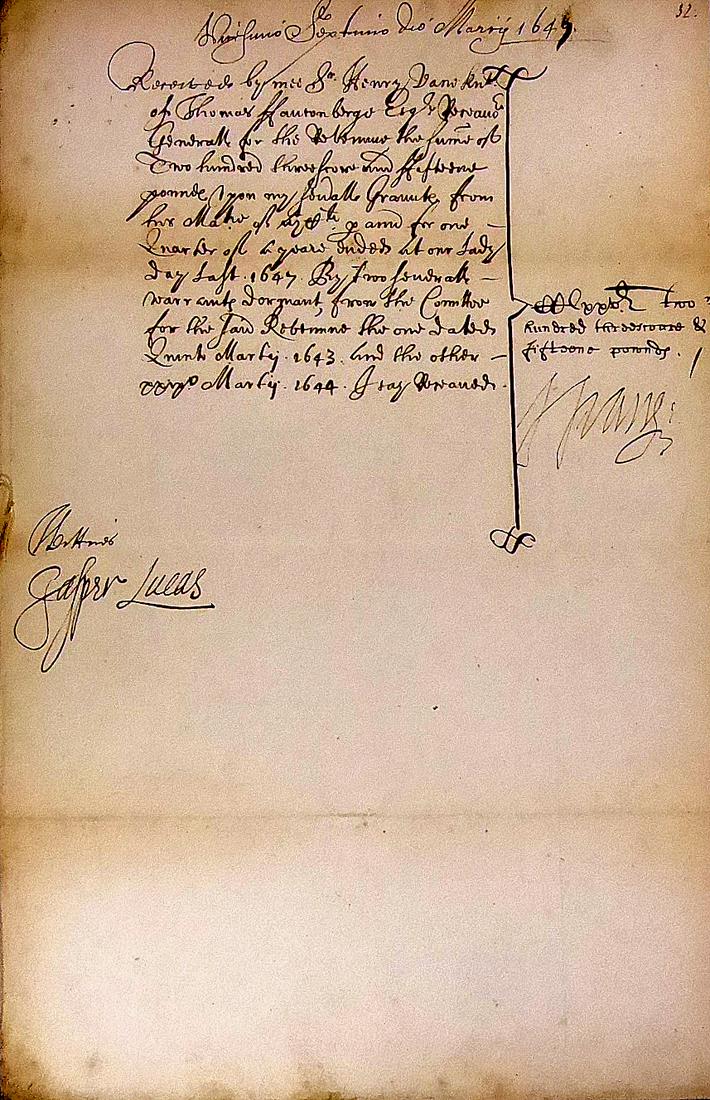 32.
Vicesimo Septimo die Martij 1647.
Received by mee Sr. Henry Vane knt.
of Thomas ffauconberge Esqr. Receavor
Generall for the Revenue the summe of
Two hundred threescore and ffifteene
pounds upon my severall Graunts from
his Matie of p annu for one
Quarter of a yeare ended at our Lady
day last. 1647. By two severall
warrants dormant, from the Comittee
for the said Revenue the one dated
Quinto Martij. 1643. and the other
Martij. 1644. I say Receaved.
CClxxv li. two
hundred threescore &
fifteene pownds.
H Vane:
Wittnes
Gasper Lucas